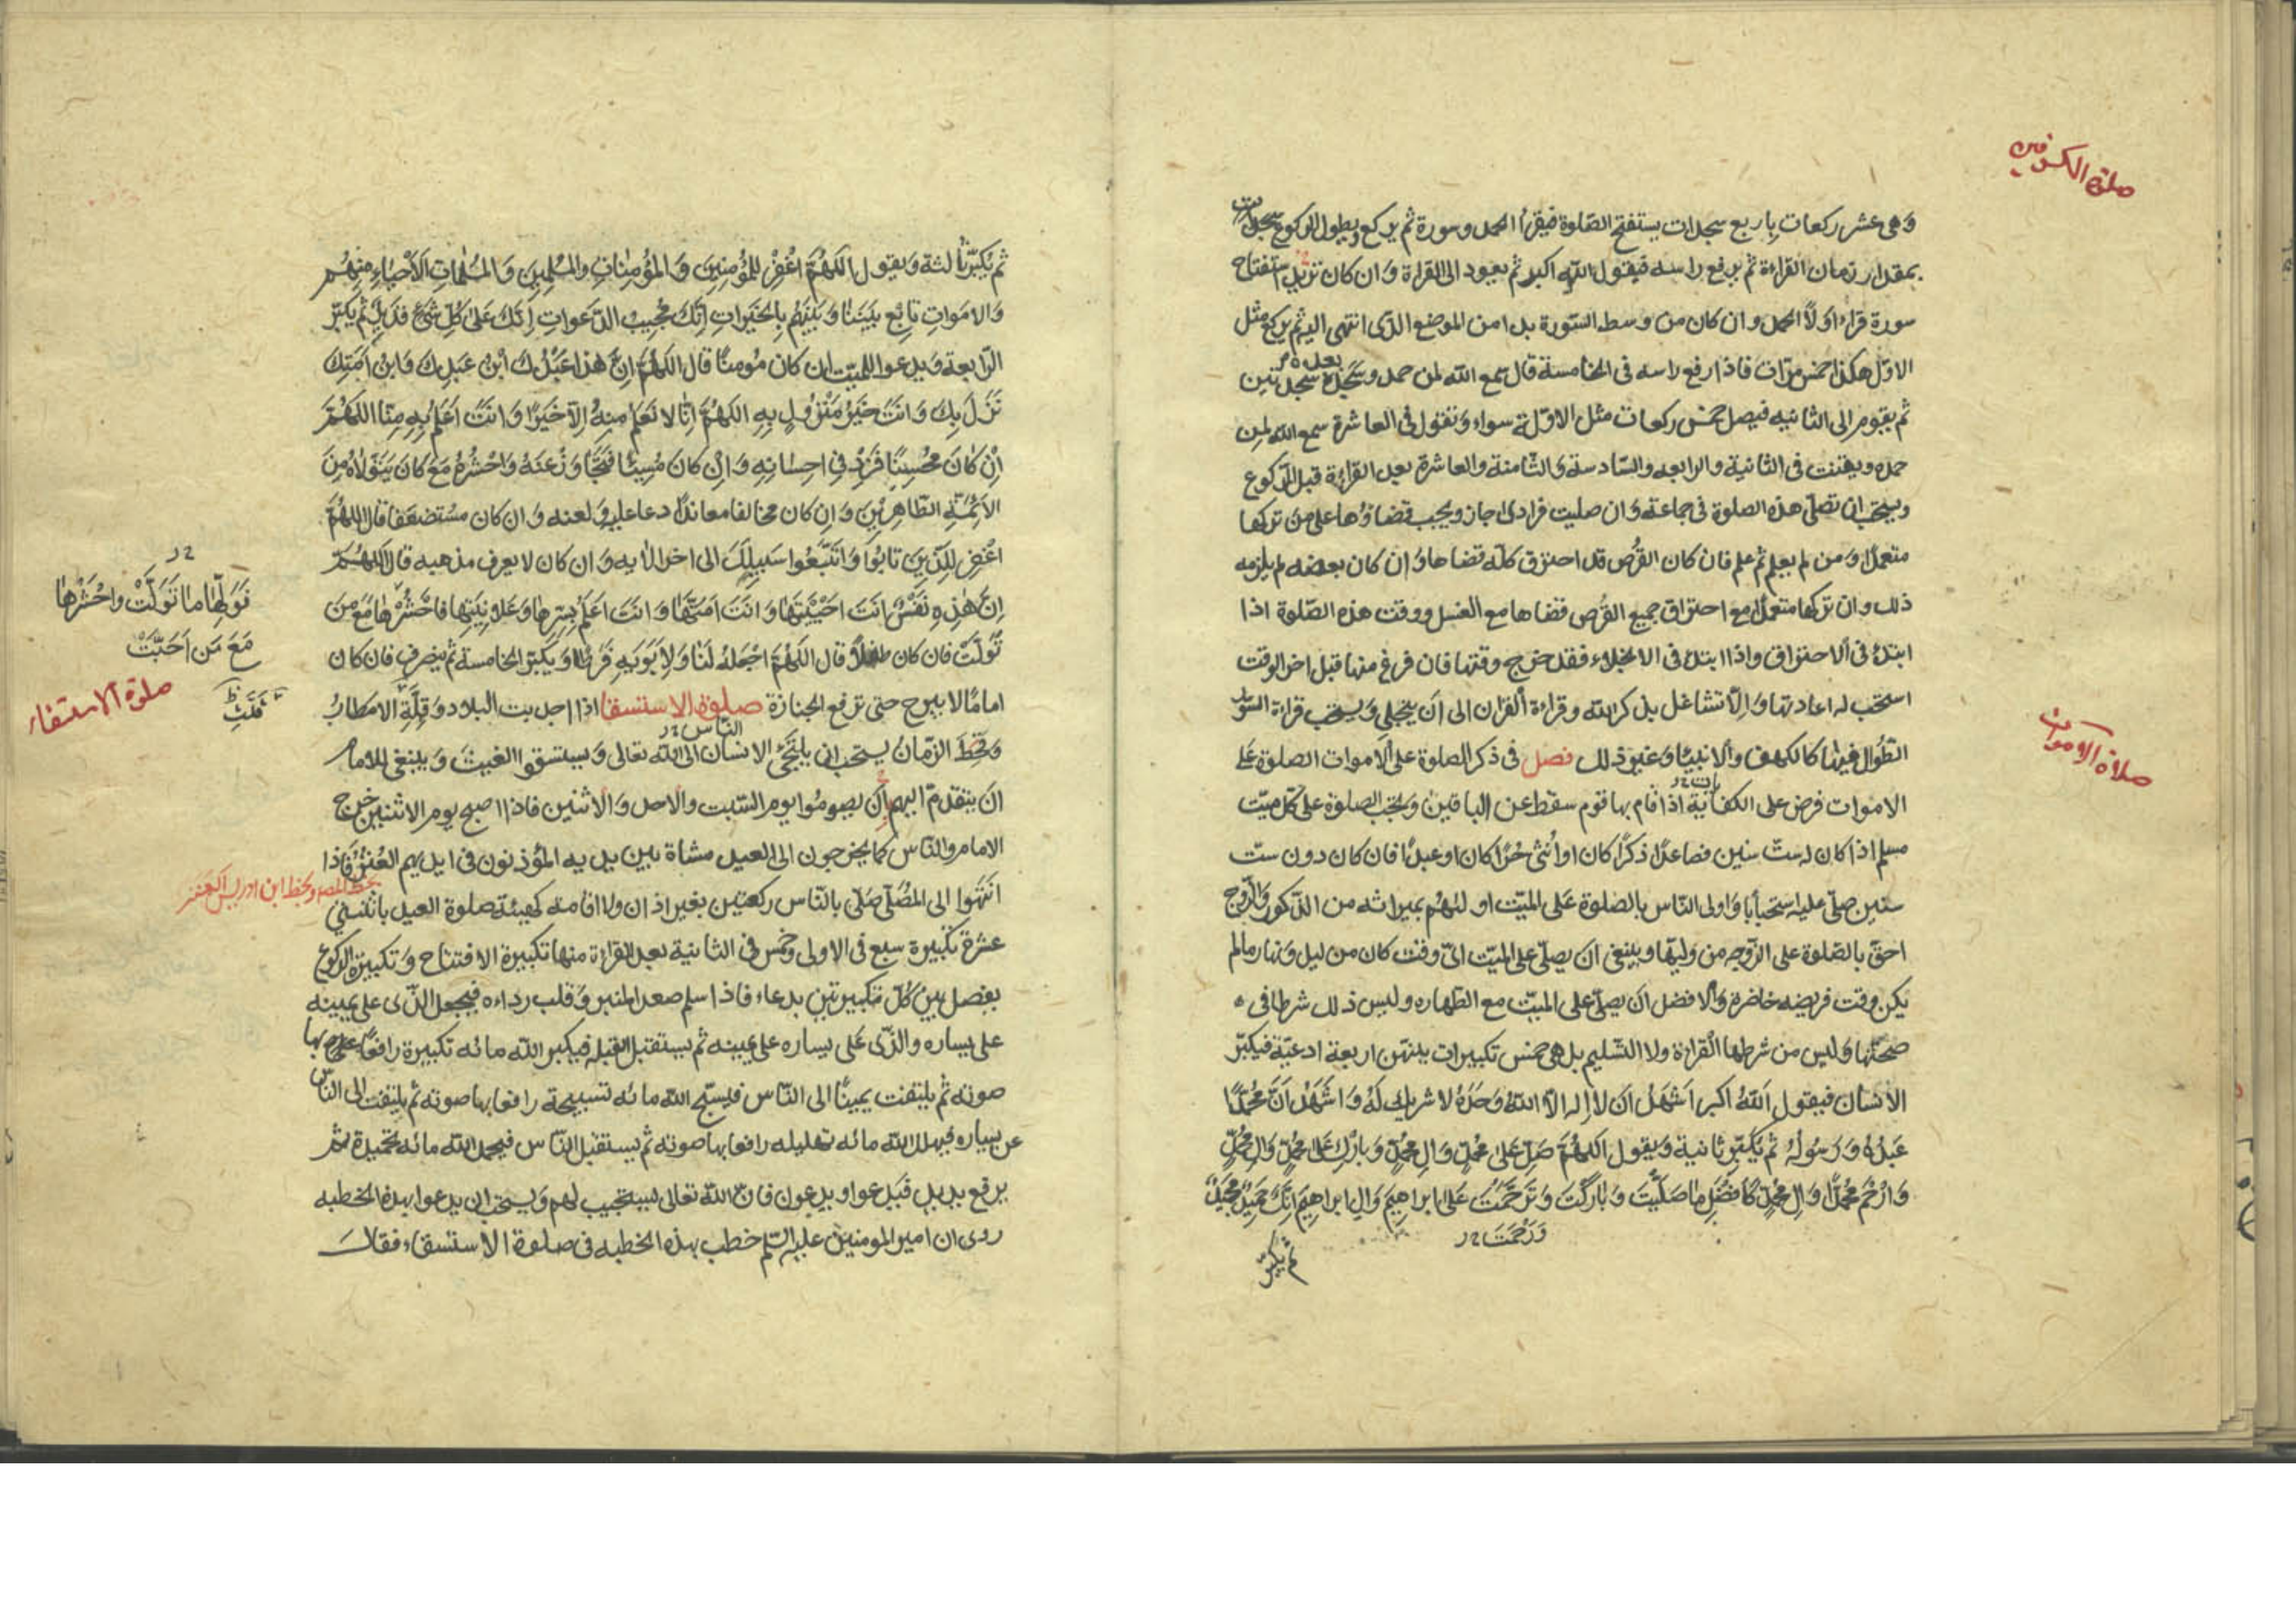 صلوة الكسوفين
وَهى عشر ركعات باربع سجدات يستفتح الصّلوة فيقرأ الحمد وسورة ثم يركع ويطول الركوع
بمقدار زمان القراءة ثم يرفع راسه فيقول الله اكبر ثم يعود الى القراءة وَان كان
سورة قراء اولاً الحمد وان كان من وسط السّورة بدا من الموضع الذّى انتهى اليه ثم يركع مثل
الاوّل هكذا خمس مرّات فاذا رفع راسه فى الخامسة قال سمع الله لمن حمده وسَجَدَ سجدتين
بعده
ثم يقوم الى الثانيه فيصل خمس ركعات مثل الاوّلة سواء وَيقول فى العاشرة سمع الله لمن
حمده ويقنت فى الثانية والرابعه والسّادسة وَالثّامنة والعاشرة بعد القراءة قبل الرّكوع
ويستحب ان تصلّى هذه الصلوة فى جماعة وَان صليت فرادى اجاز ويجب قضاؤها على من تركها
متعمدًا وَمن لم يعلم ثم علم فان كان القُرص قد احترق كلّه قضاها وَان كان بعضه لم يلزمه
ذلك وان تركها متعمدًا مع احتراق جميع القُرص قضاها مع الغسل ووقت هذه الصّلوة اذا
ابتدأ فى الاحتراق واذا ابتدأ فى الانجلاء فقد خرج وقتها فان فرغ منها قبل اخر الوقت
استحب له اعادتها وَالّا تشاغل بذكر الله وقراءة القران الى اَن ينجلى وَيستحب قراءة السّور
الطّوال فيها كالكهف والانبيا وَغير ذلك فصل فى ذكر الصلوة على الاموات الصلوة على
صلاة الاموات
الاموات فرض على الكفاية اذا قام بها قوم سقط عن الباقين وَيجب الصلوة على كلّ ميّت
مسلم اذا كان له ستّ سنين فصاعدًا ذكرًا كان او اُنثى حُرًّا كان او عبدًا فان كان دون ستّ
سنين صلّى عليه استحبابا وَاولى النّاس بالصلوة عَلى الميّت اولٰهُم بميراثه من الذّكور وَالزّوج
احقّ بالصّلوة على الزّوجه من وليّها وينبغى ان يصلّى على الميّت اىّ وقت كان من ليل وَنهار مالم
يكن وقت فريضه حاضرة وَالافضل اَن يصلّى على الميّت مع الطّهاره وليس ذلك شرطا فى
صحتها وَليس من شرطها القراءة ولا التّسليم بل هى خمس تكبيرات بينهن اربعة ادعيّة فيكبّر
الانسان فيقول اَللهُ اكبر اَشهَدُ اَن لا اِله الّا اللهُ وَحدَهُ لا شريكَ لَهُ وَاَشهَدُ اَنَّ مُحَمَّدًا
عَبدُهُ وَرَسُولُهُ ثم يُكَبّر ثانية وَيقول اَللّهُمَّ صَلِّ عَلى مُحَمَّدٍ وَالِ مُحَمَّدٍ وَبارِك عَلى مُحَمَّدٍ وَالِ مُحَمَّدٍ
وَارحَم مُحَمَّدًا وَالَ مُحَمَّدٍ كَافضَلِ ما صَلَّيتَ وَبارَكتَ وَتَرَحَّمتَ عَلى ابراهيمَ وَالِ ابراهيمَ اِنَّكَ حَميدٌ مَجيدٌ
وَرَحِمتَ
ثم يكبّر
ثم يُكَبّر ثالثة وَيقول اللّهُمَّ اغفِر لِلمُؤمِنينَ وَالمُؤمِناتِ وَالمُسلِمينَ وَالمُسلِماتِ الاَحياءِ مِنهُم
وَالاموَاتِ تابِع بَينَنا وَبَينَهُم بِالخَيراتِ اِنَّكَ مُجيبُ الدَّعَواتِ اِنَّكَ عَلى كُلِّ شَىءٍ قَديرٌ ثم يكبّر
الرّابعة وَيدعوا للميّت ان كان مُومنًا قال اللّهُمَّ اِنَّ هٰذا عَبدُكَ ابنُ عَبدِكَ وَابنُ اَمَتِكَ
نَزَلَ بِكَ وَاَنتَ خَيرُ مَنزُولٍ بِهِ اللّهُمَّ اِنّا لا نَعلَمُ مِنهُ اِلّا خَيرًا وَاَنتَ اَعلَمُ بِهِ مِنّا اللّهُمَّ
اِن كانَ مُحسِنًا فَزِد فى اِحسانِهِ وَاِن كانَ مُسيئًا فَتَجاوَز عَنهُ وَاحشُرهُ مَعَ مَن كانَ يَتَوَلّاهُ مِنَ
الاَئِمَّةِ الطّاهِرينَ وَاِن كان مخالفا معاندًا دعا عليه وَلعنه وَان كان مستضعَفا قال اللّهُمَّ
اغفِر لِلَّذينَ تابُوا وَاتَّبَعُوا سَبيلَكَ الى اخر الايه وَان كان لا يعرف مذهبه قال اللّهُمَّ
اِنَّ هٰذِهِ نَفسٌ اَنتَ اَحيَيتَها وَاَنتَ اَمَتَّها وَاَنتَ اَعلَمُ بِسِرِّها وَعَلانِيَتِها فاحشُرها مَعَ مَن
نَوَلِّها ما تَوَلَّت وَاحشُرها
مَعَ مَن اَحَبَّت
تَوَلَّت فان كان طفلًا قال اللّهُمَّ اجعَلهُ لَنا وَلِاَبَوَيهِ فَرَطًا وَيكبّر الخامسة ثم ينصرف فان كان
امامًا لا يبرح حتى ترفع الجنازة صلوة الاستسقا اذا اجدبت البلاد وَقِلَّة الامطارُ
قَلّت
صلوة الاستسقاء
وَقحَط الزّمانُ يستحب ان يلتجَى الانسان الى الله تعالى وَيستسقوا الغيثَ وَينبغى للامام
النّاس
ان يتقدمّ اليهم اَن يصوموا يوم السّبت والاحد وَالاثنين فاذا اصبح يوم الاثنين خرج
الامام والنّاس كما يخرجون الى العيد مشاة بين يديه المؤذنون فى ايديهم العُنَزُ فَاذا
بخط المصـ وبخط ابن ادريس
انتَهَوا الى المصَلّى صَلّى بالنّاس ركعتين بغير اذان ولا اقامة كهيئة صلوة العيد باثنتى
عشرة تكبيرة سبع فى الاولى وخمس فى الثانية بعد القراءة منها تكبيرة الافتتاح وَتكبيرة الركوع
يفصل بين كُلّ تكبيرتين بدعاء فاذا سلم صعد المنبر وَقلب رداءه فيجعل الذّى على يمينه
على يساره والذّى عَلى يساره على يمينه ثم يستقبل القبلة فيكبر الله مائه تكبيرة رافعًا بها
صوته ثم يلتفت يمينًا الى النّاس فيسبّح الله مائه تسبيحة رافعا بها صوته ثم يلتفت الى النّاس
عن يساره فيهلل الله مائه تهليله رافعا بها صوته ثم يستقبل النّاس فيحمد الله مائه تحميدة ثم
يرفع يديه فيَدعوا ويدعون فانّ الله تعالى يستجيب لهم وَيستحب ان يدعوا بهذه الخطبه
روى ان امير المومنين عليه السّلم خطب بهذه الخطبه فى صلوة الاستسقاء فقال